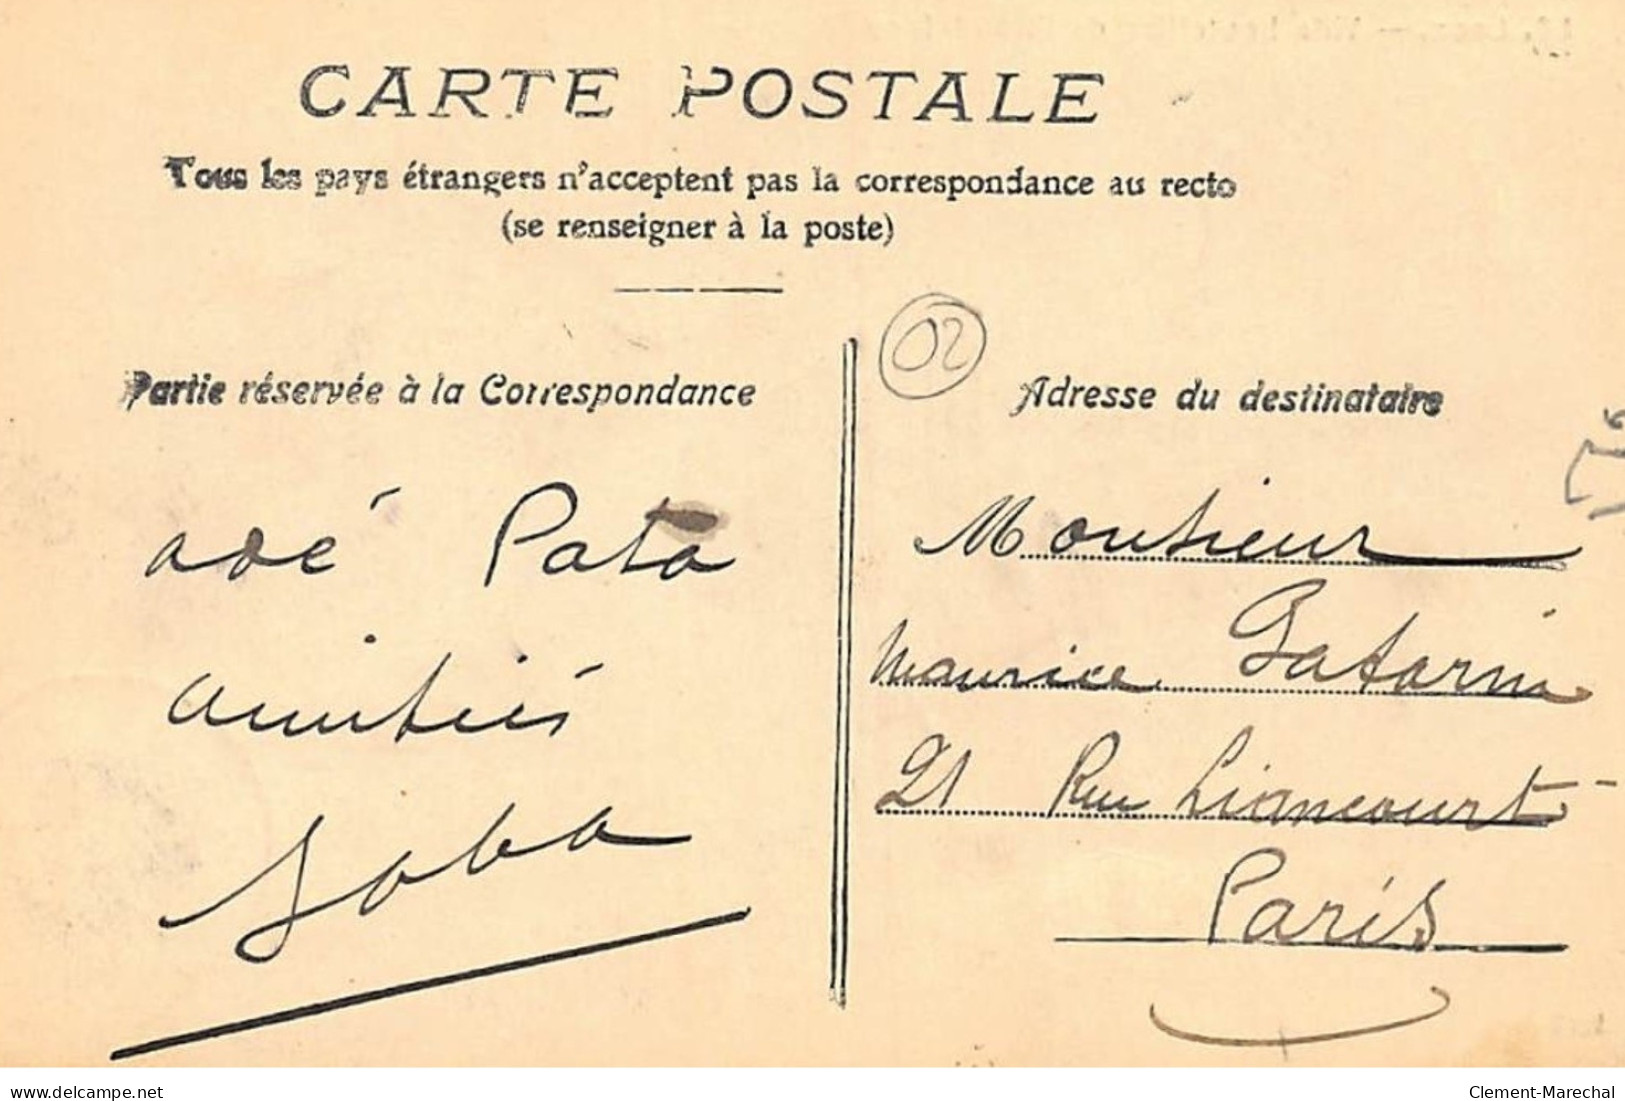 CARTE POSTALE
Tous les pays étrangers n'acceptent pas la correspondance au recto
(se renseigner à la poste)
02
Partie réservée à la Correspondance
Adresse du destinataire
adé Pata
amitiés
Monsieur
Maurice Gatorin
21 Rue Liancourt
Paris
delcampe.net
Clement-Marechal